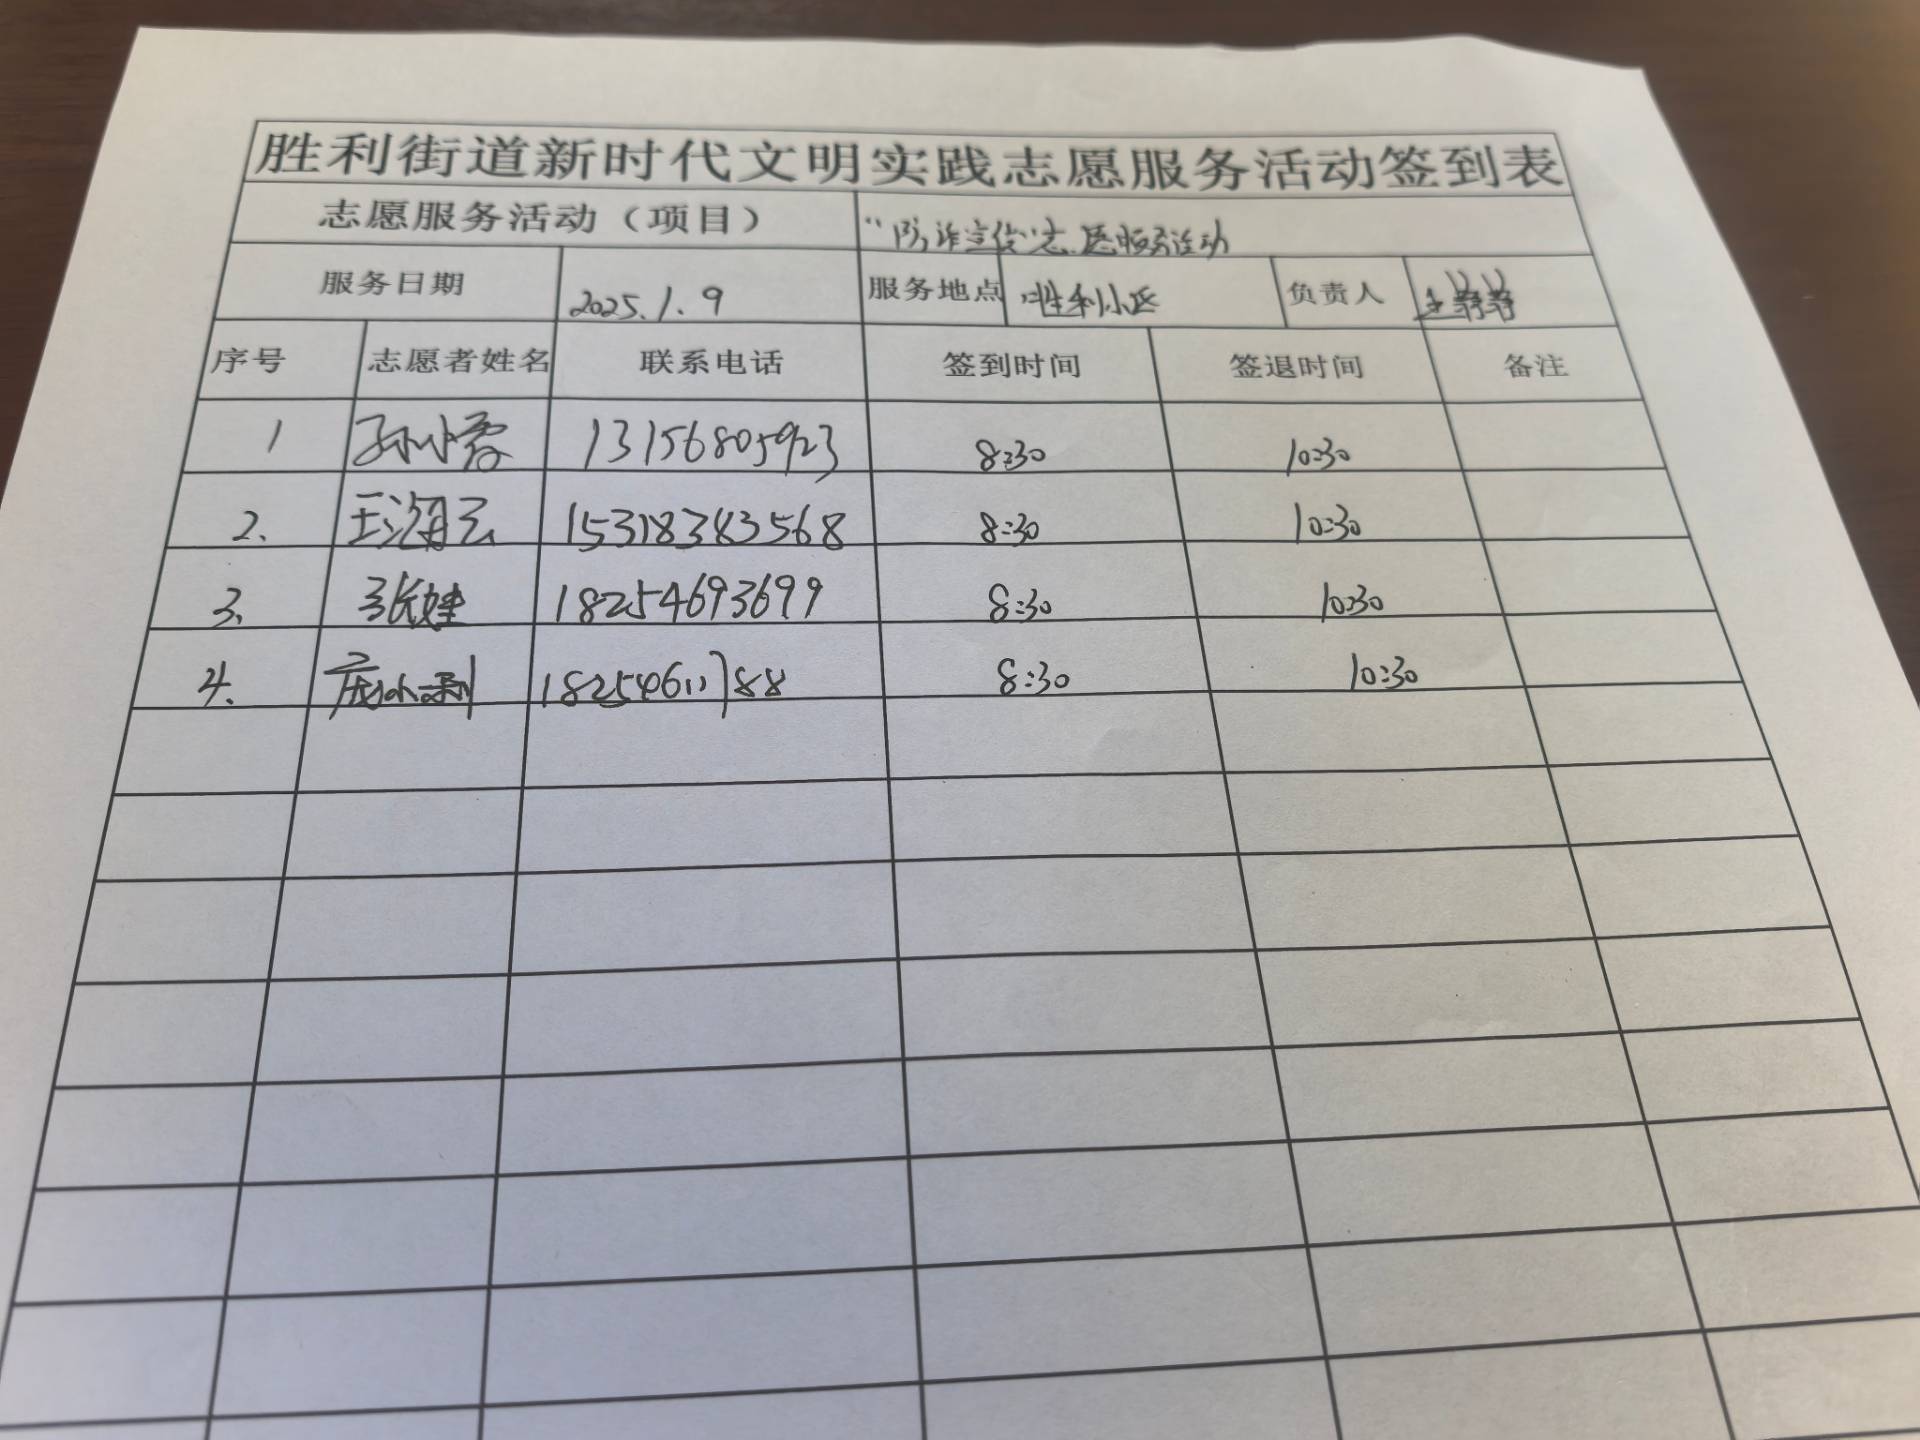 胜利街道新时代文明实践志愿服务活动签到表
志愿服务活动（项目） “防诈宣传”志愿服务活动
服务日期 2025.1.9 服务地点 胜利小区 负责人
序号 志愿者姓名 联系电话 签到时间 签退时间 备注
1 孙小霞 13156805923 8:30 10:30
2. 王海云 15318383568 8:30 10:30
3. 张娃 18254693699 8:30 10:30
4. 8:30 10:30